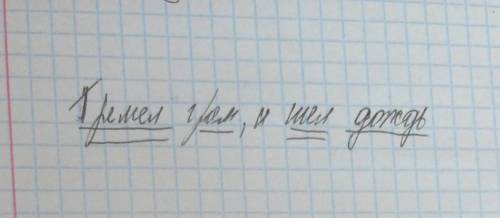 Гремел гром, и шел дождь